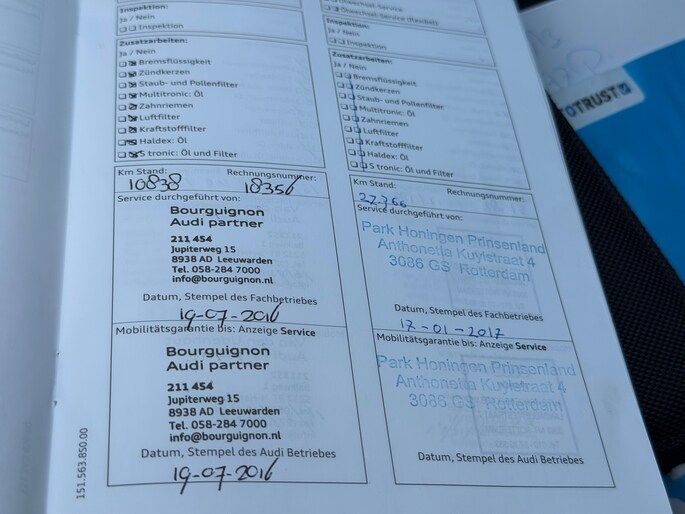 Inspektion:
Ja / Nein
Inspektion
Zusatzarbeiten:
Ja / Nein
Bremsflüssigkeit
Zündkerzen
Staub- und Pollenfilter
Multitronic: Öl
Zahnriemen
Luftfilter
Kraftstofffilter
Haldex: Öl
S tronic: Öl und Filter
Km Stand: Rechnungsnummer:
10838 18356
Service durchgeführt von:
Bourguignon
Audi partner
211 454
Jupiterweg 15
8938 AD Leeuwarden
Tel. 058-284 7000
info@bourguignon.nl
Datum, Stempel des Fachbetriebes
19-07-2016
Mobilitätsgarantie bis: Anzeige Service
Bourguignon
Audi partner
211 454
Jupiterweg 15
8938 AD Leeuwarden
Tel. 058-284 7000
info@bourguignon.nl
Datum, Stempel des Audi Betriebes
19-07-2016
151.563.850.00
Inspektion:
Ja / Nein
Inspektion
Zusatzarbeiten:
Ja / Nein
Bremsflüssigkeit
Zündkerzen
Staub- und Pollenfilter
Multitronic: Öl
Zahnriemen
Luftfilter
Kraftstofffilter
Haldex: Öl
S tronic: Öl und Filter
Km Stand: Rechnungsnummer:
27.366
Service durchgeführt von:
Park Honingen Prinsenland
Anthonetta Kuylstraat 4
3086 GS Rotterdam
Datum, Stempel des Fachbetriebes
17-01-2017
Mobilitätsgarantie bis: Anzeige Service
Park Honingen Prinsenland
Anthonetta Kuylstraat 4
3086 GS Rotterdam
Datum, Stempel des Audi Betriebes
OTRUST